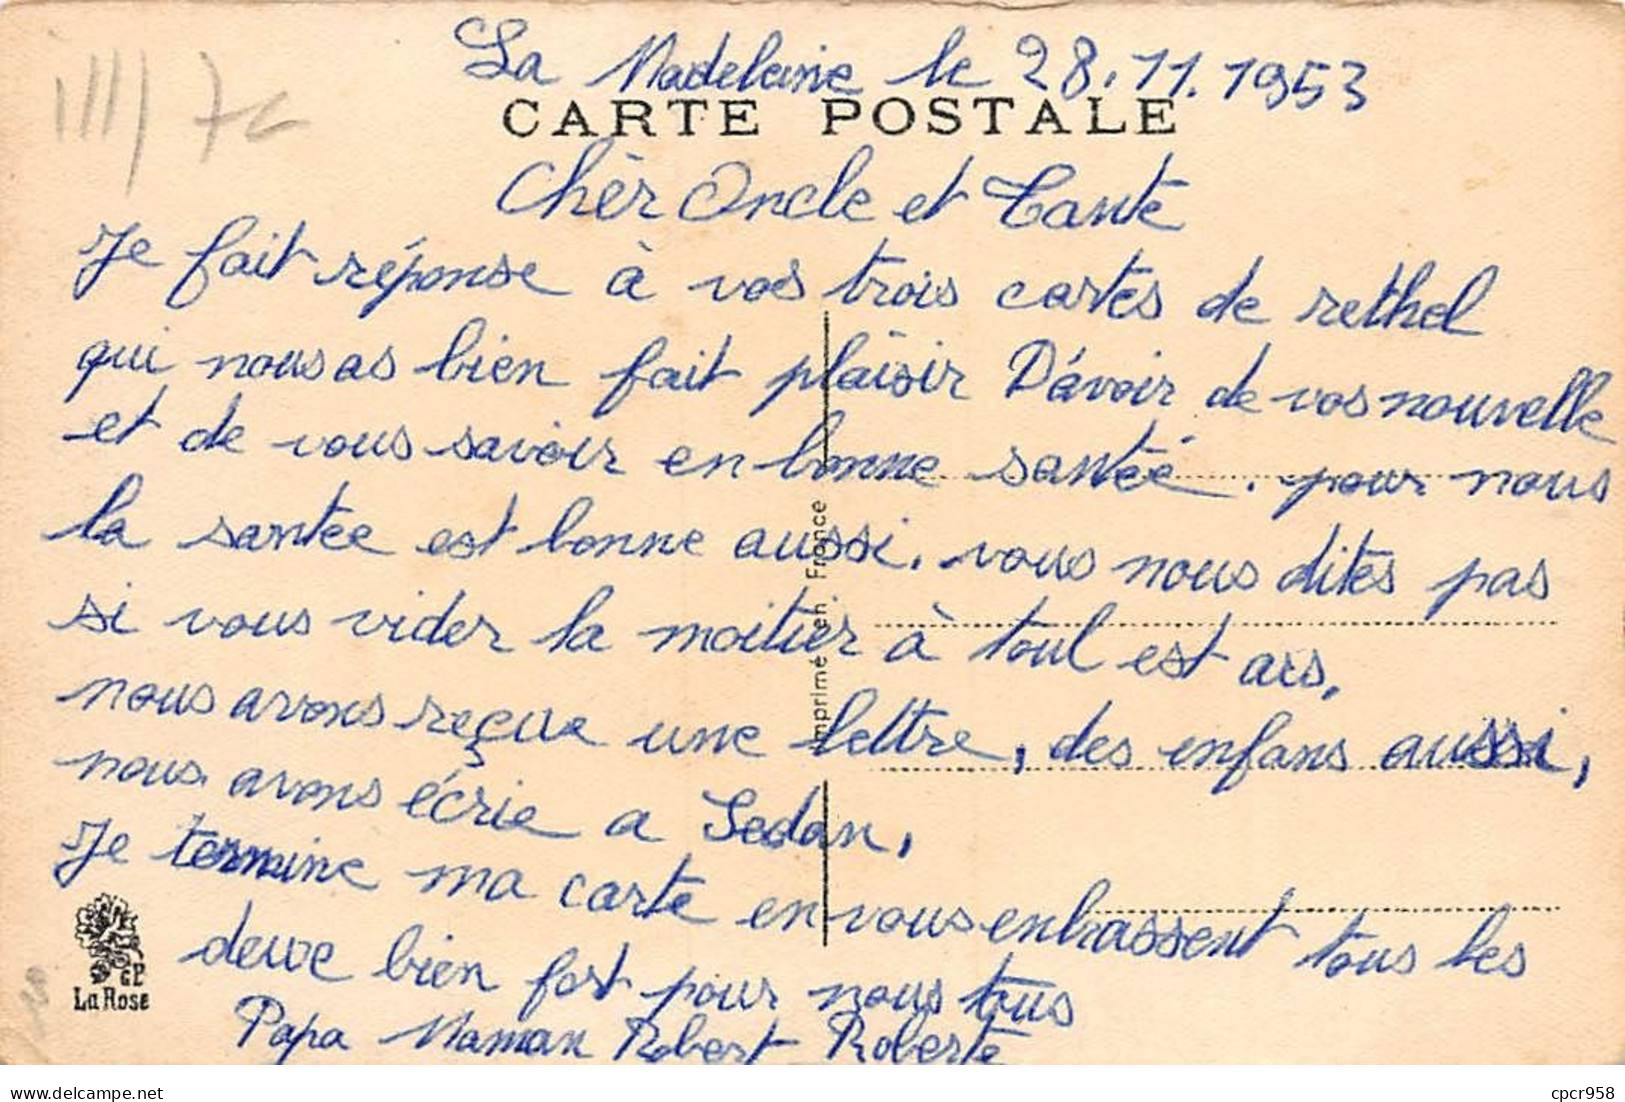 La Madeleine le 28.11.1953
CARTE POSTALE
Chèr Oncle et Tante
Je fait réponse à vos trois cartes de rethel
qui nous as bien fait plaisir D'avoir de vos nouvelle
et de vous savoir en bonne santée. pour nous
la santee est bonne aussi. vous nous dites pas
si vous vider la moitier à toul est ars.
nous avons reçue une lettre, des enfans aussi,
nous avons écrie a Sedan,
Je termine ma carte en vous enbrassent tous les
deuve bien fort pour nous tous
Papa Maman Robert Roberte
Imprimé en France
EP
La Rose
delcampe.net
cpcr958